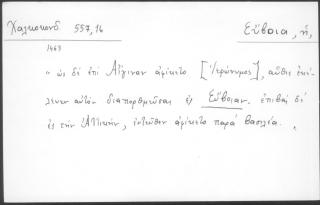 Χαλκοκονδ. 557,16 Εὔβοια, ἡ,
1463
" ὡς δὲ ἐπὶ Αἴγιναν ἀφίκετο [Ἱερώνυμος], αὖθις ἐκέ-
λευεν αὐτὸν διαπορθμεῦσαι ἐς Εὔβοιαν. ἐπιβὰς δὲ
ἐς τὴν Ἀττικήν, ἐντεῦθεν ἀφίκετο παρὰ βασιλέα. "